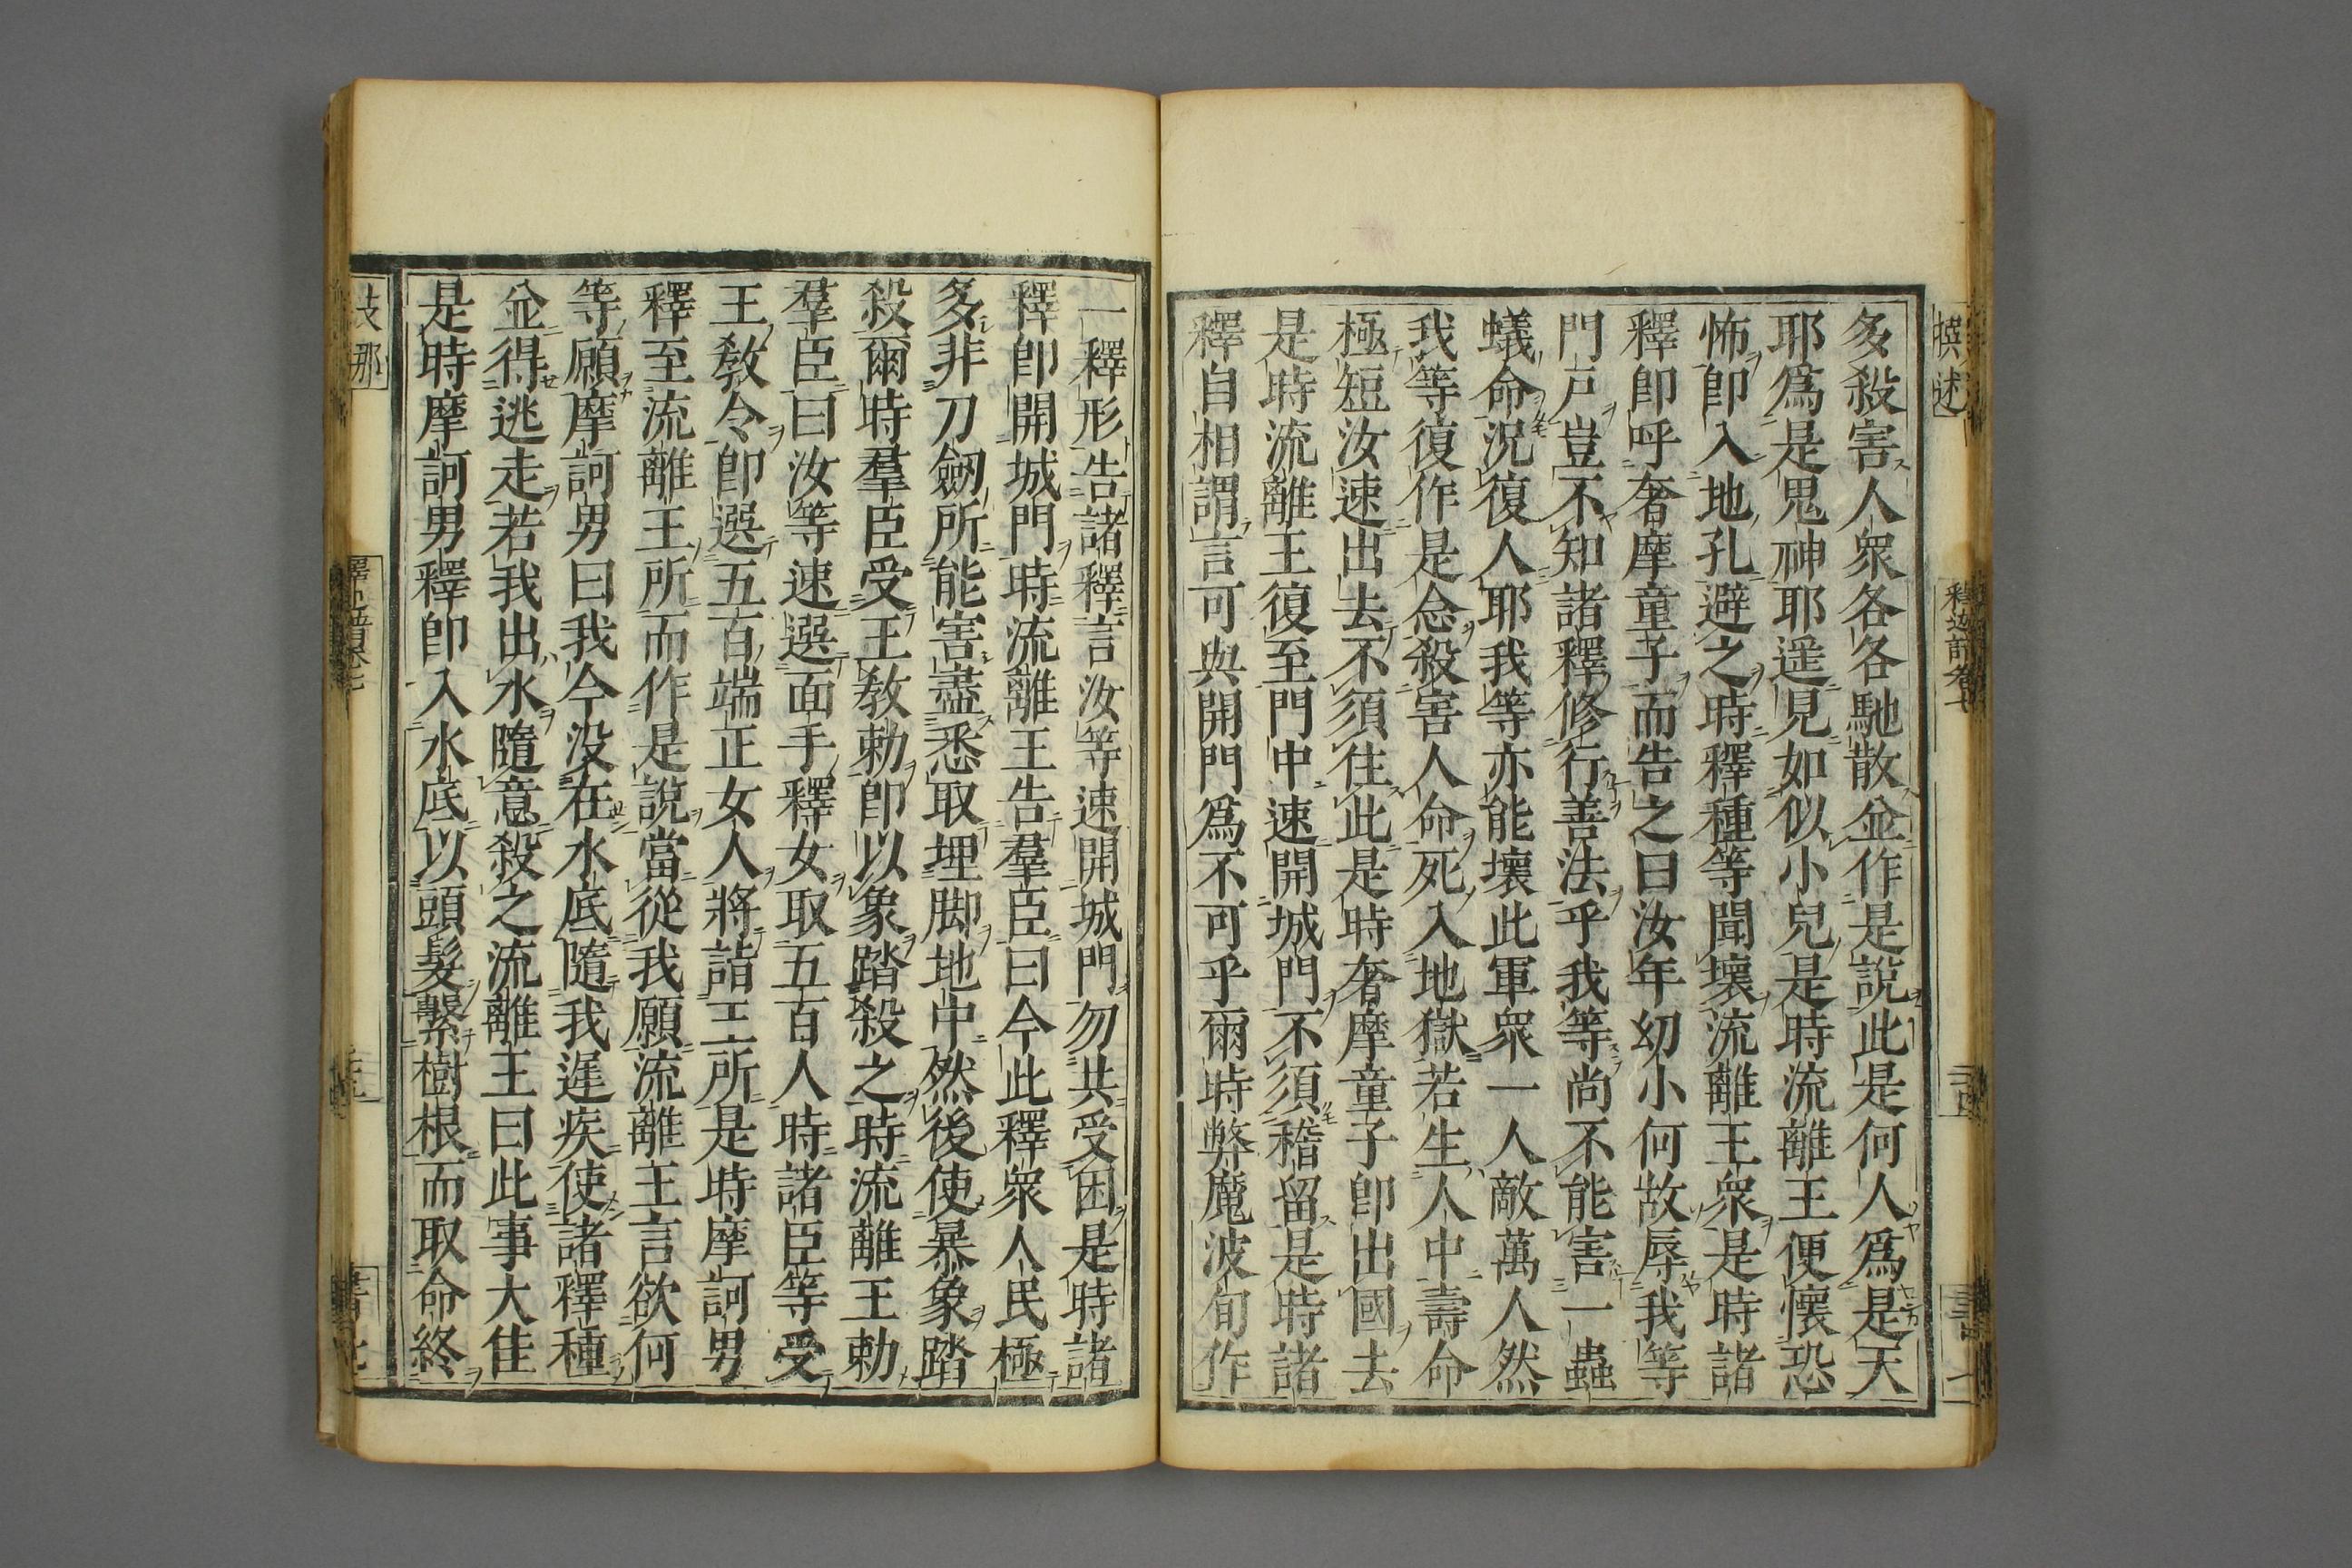 撰述
多殺害人衆各各馳散並作是說此是何人爲是天
耶爲是鬼神耶遥見如似小兒是時流離王便懷恐
怖卽入地孔避之時釋種等聞壞流離王衆是時諸
釋卽呼奢摩童子而告之曰汝年幼小何故辱我等
門戸豈不知諸釋修行善法乎我等尚不能害一蟲
蟻命况復人耶我等亦能壞此軍衆一人敵萬人然
我等復作是念殺害人命死入地獄若生人中壽命
極短汝速出去不須住此是時奢摩童子卽出國去
是時流離王復至門中速開城門不須稽留是時諸
釋自相謂言可與開門爲不可乎爾時弊魔波旬作
一釋形告諸釋言汝等速開城門勿共受困是時諸
釋卽開城門時流離王告羣臣曰今此釋衆人民極
多非刀劒所能害盡悉取埋脚地中然後使暴象踏
殺爾時羣臣受王敎勅卽以象踏殺之時流離王勅
羣臣曰汝等速選面手釋女取五百人時諸臣等受
王敎令卽選五百端正女人將詣王所是時摩訶男
釋至流離王所而作是說當從我願流離王言欲何
等願摩訶男曰我今没在水底隨我遲疾使諸釋種
並得逃走若我出水隨意殺之流離王曰此事大佳
是時摩訶男釋卽入水底以頭髮繫樹根而取命終
支那